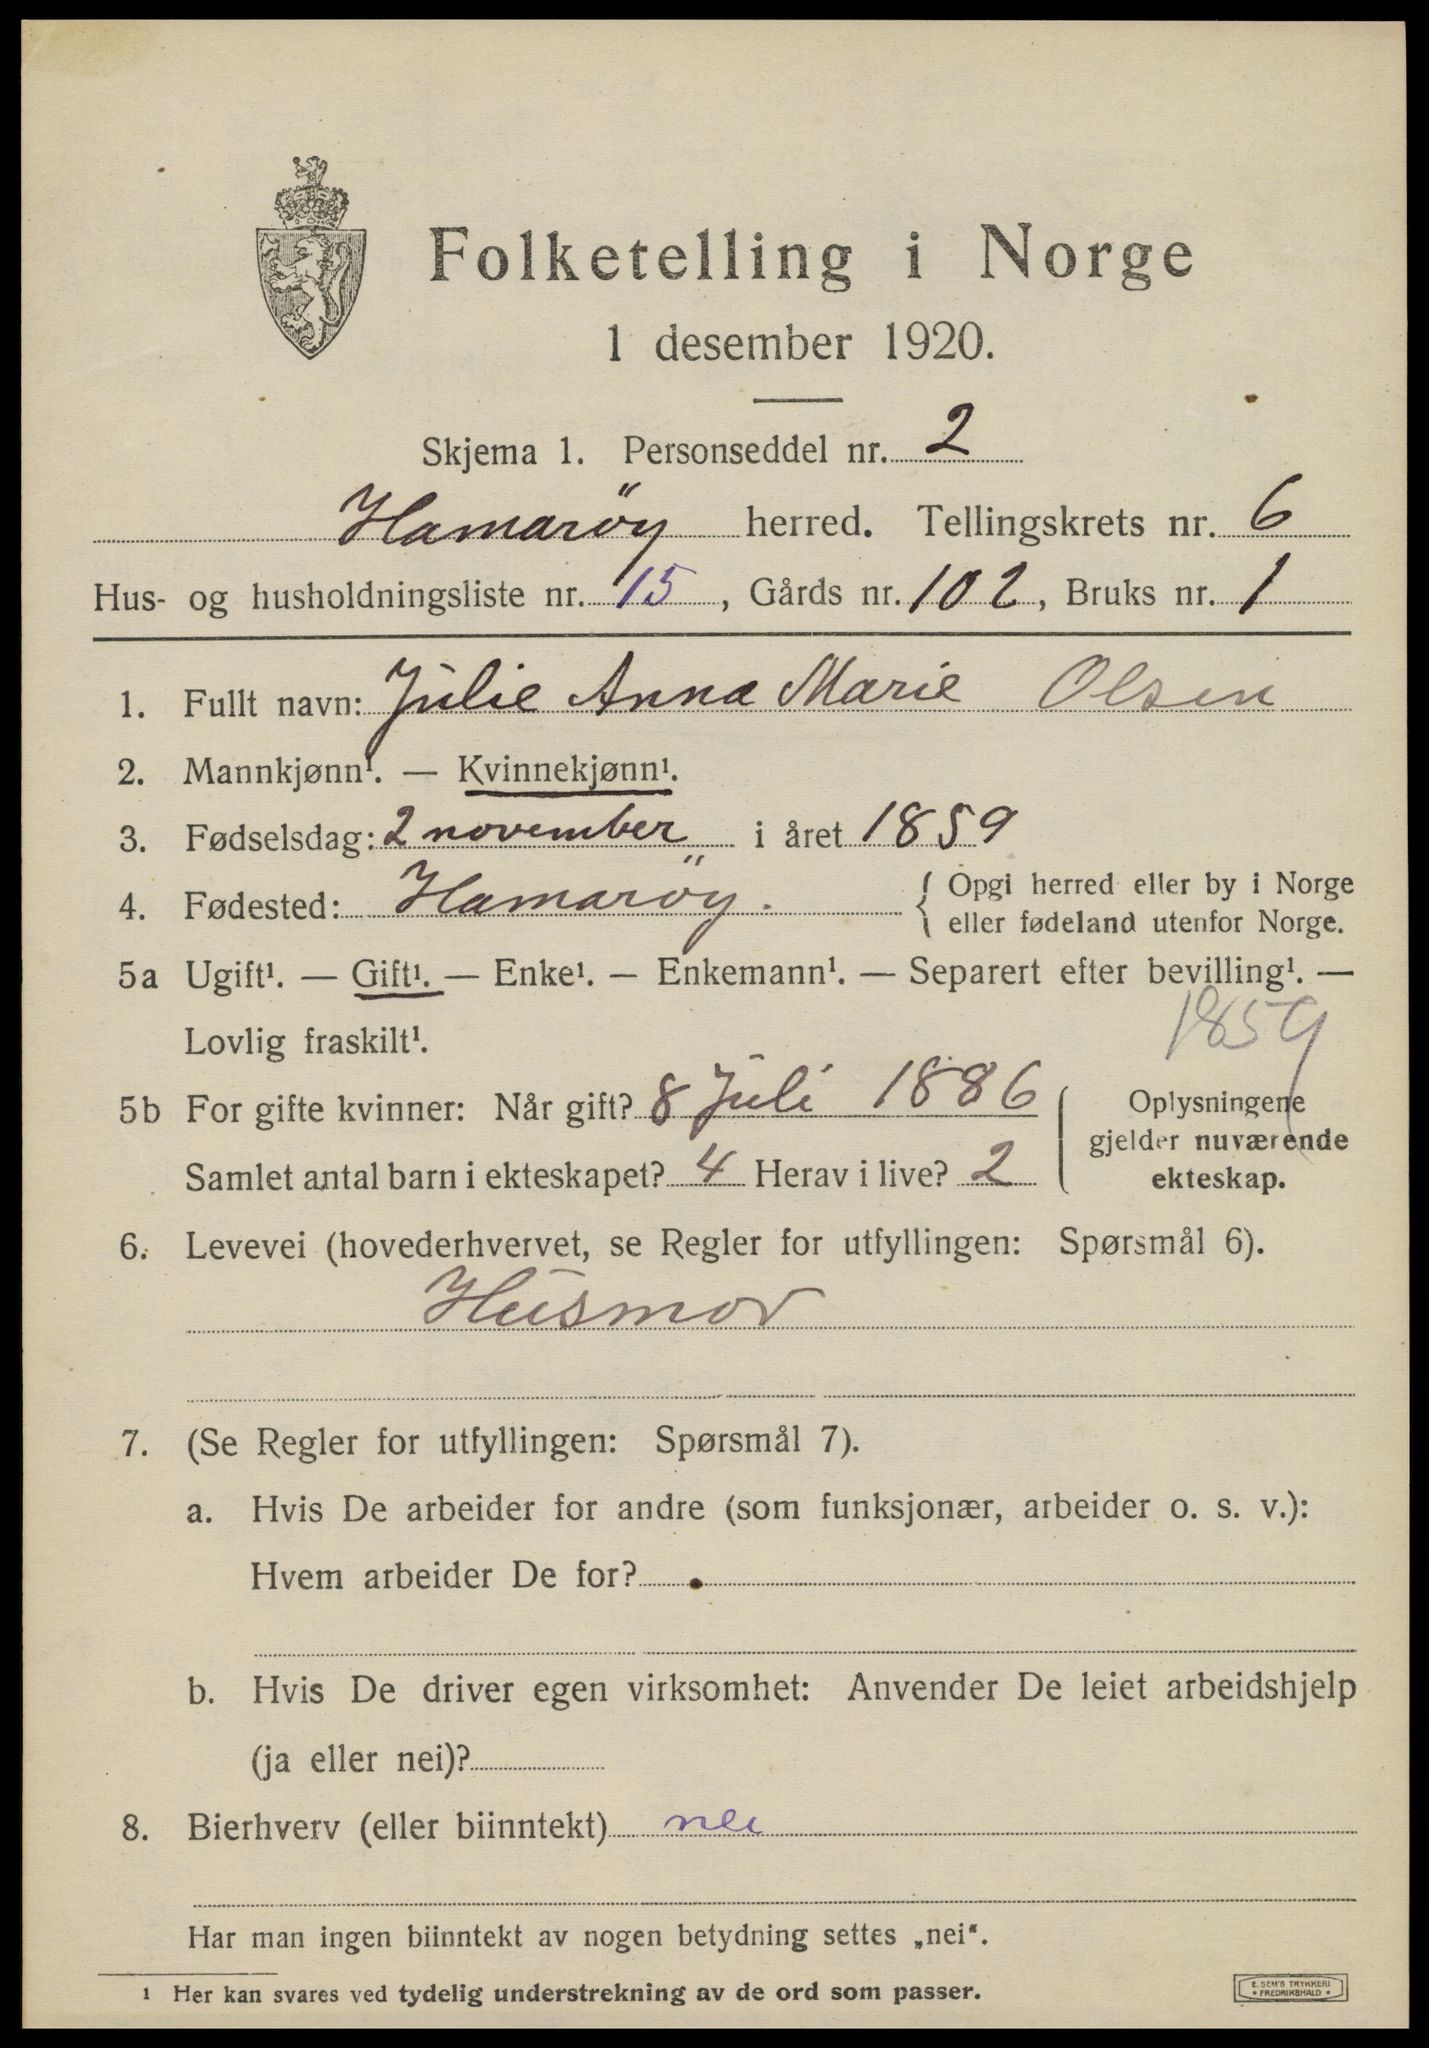 Folketelling i Norge
1 desember 1920.
Skjema 1. Personseddel nr. 2
Hamaröy herred. Tellingskrets nr. 6
Hus- og husholdningsliste nr. 15, Gårds nr. 102, Bruks nr. 1
1. Fullt navn: Julie Anna Marie Olsen
2. Mannkjønn¹. — Kvinnekjønn¹.
3. Fødselsdag: 2 november i året 1859
4. Fødested: Hamaröy. { Opgi herred eller by i Norge
eller fødeland utenfor Norge.
5a Ugift¹. — Gift¹. — Enke¹. — Enkemann¹. — Separert efter bevilling¹. —
Lovlig fraskilt¹.
1859
5b For gifte kvinner: Når gift? 8 Juli 1886
Samlet antal barn i ekteskapet? 4 Herav i live? 2
Oplysningene
gjelder nuværende
ekteskap.
6. Levevei (hovederhvervet, se Regler for utfyllingen: Spørsmål 6).
Husmor
7. (Se Regler for utfyllingen: Spørsmål 7).
a. Hvis De arbeider for andre (som funksjonær, arbeider o. s. v.):
Hvem arbeider De for?
b. Hvis De driver egen virksomhet: Anvender De leiet arbeidshjelp
(ja eller nei)?
8. Bierhverv (eller biinntekt) nei
Har man ingen biinntekt av nogen betydning settes „nei“.
¹ Her kan svares ved tydelig understrekning av de ord som passer.
E. SEM'S TRYKKERI
• FREDRIKSHALD •